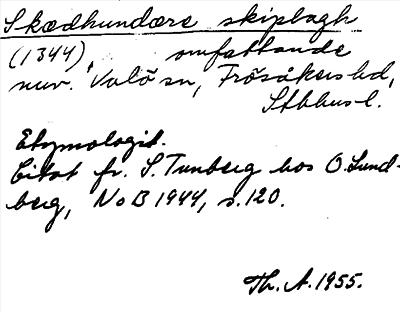 Skædhundære skiplagh
(1344), omfattande
nuv. Valö sn, Frösåkers hd,
Sthhus l.
Etymologit.
Citat fr. S. Tunberg hos O. Lund-
berg, NoB 1944, s. 120.
Th. A. 1955.